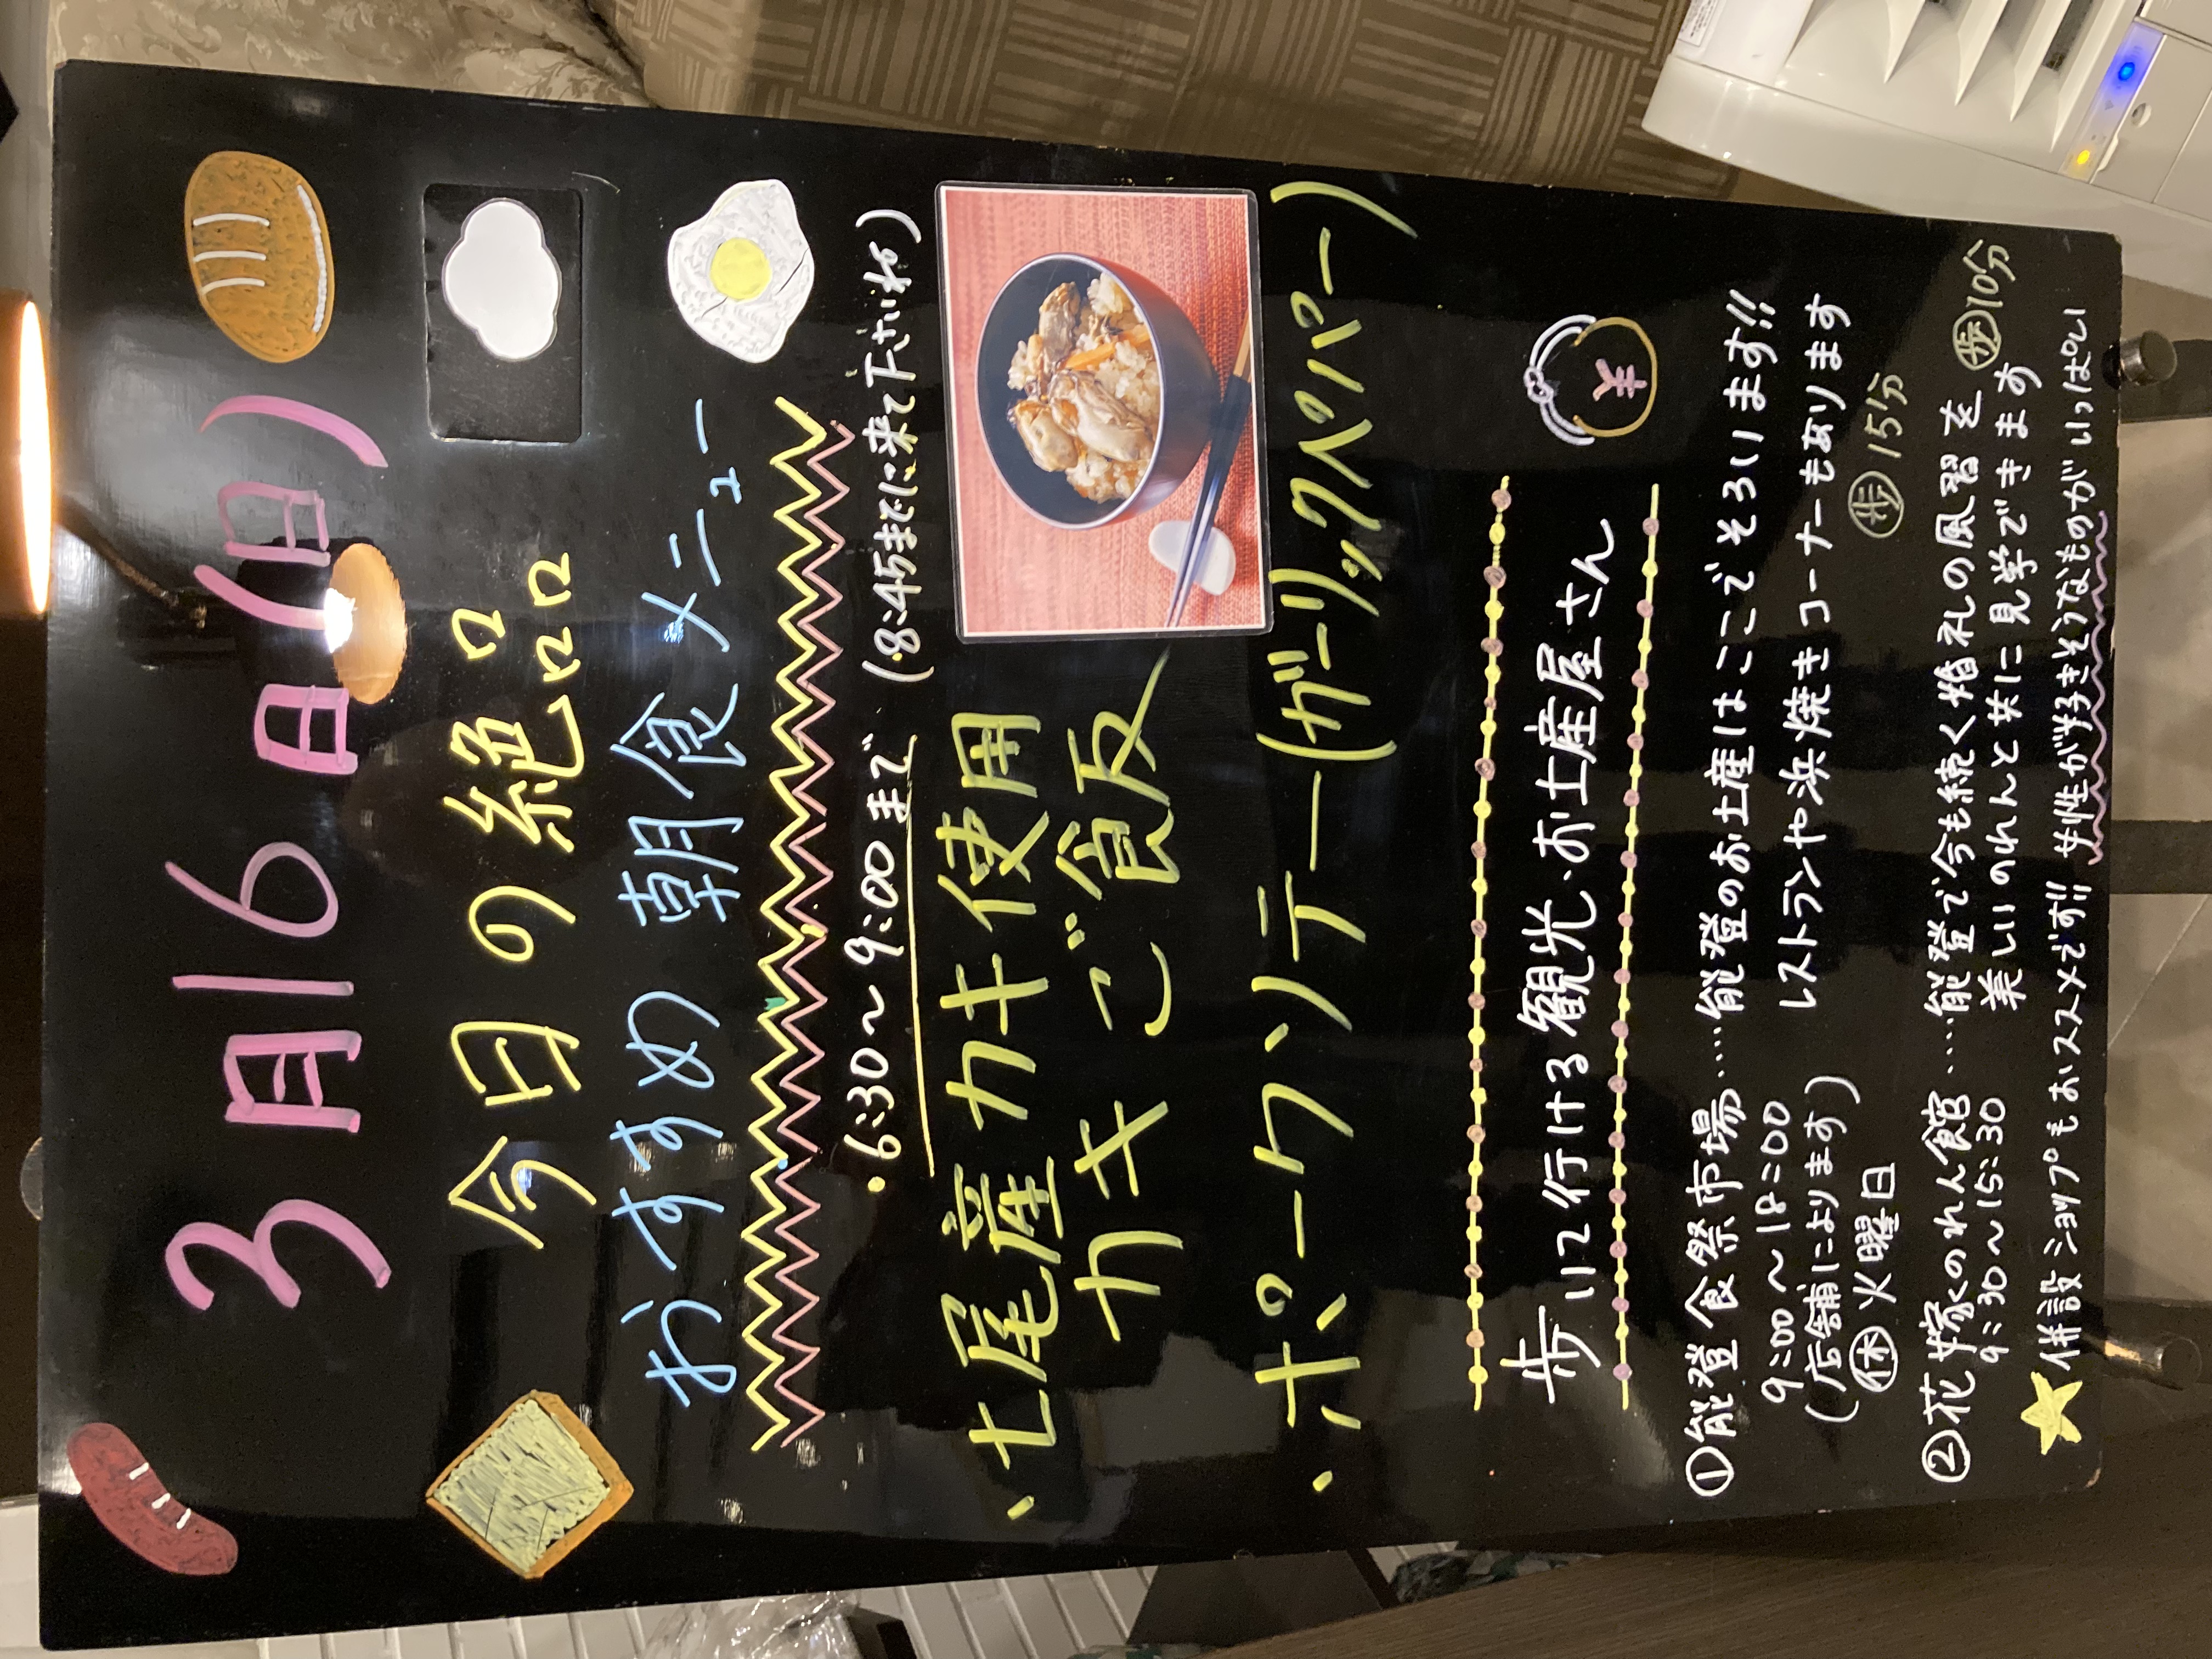 3月16日(日)
今日の絶品
おすすめ 朝食メニュー
・6:30～9:00まで (8:45までに来て下さいね)
・七尾産カキ使用
カキご飯
・ポークソテー(ガーリックペッパー)
歩いて行ける観光・お土産屋さん
①能登食祭市場……能登のお土産はここでそろいます!!
9:00～18:00 レストランや浜焼きコーナーもあります
(店舗によります)
㊡火曜日 歩15分
②花嫁のれん館……能登で今も続く婚礼の風習を 歩10分
9:30～15:30 美しいのれんと共に見学できます
★併設ショップもおススメです!! 女性が好きそうなものがいっぱい